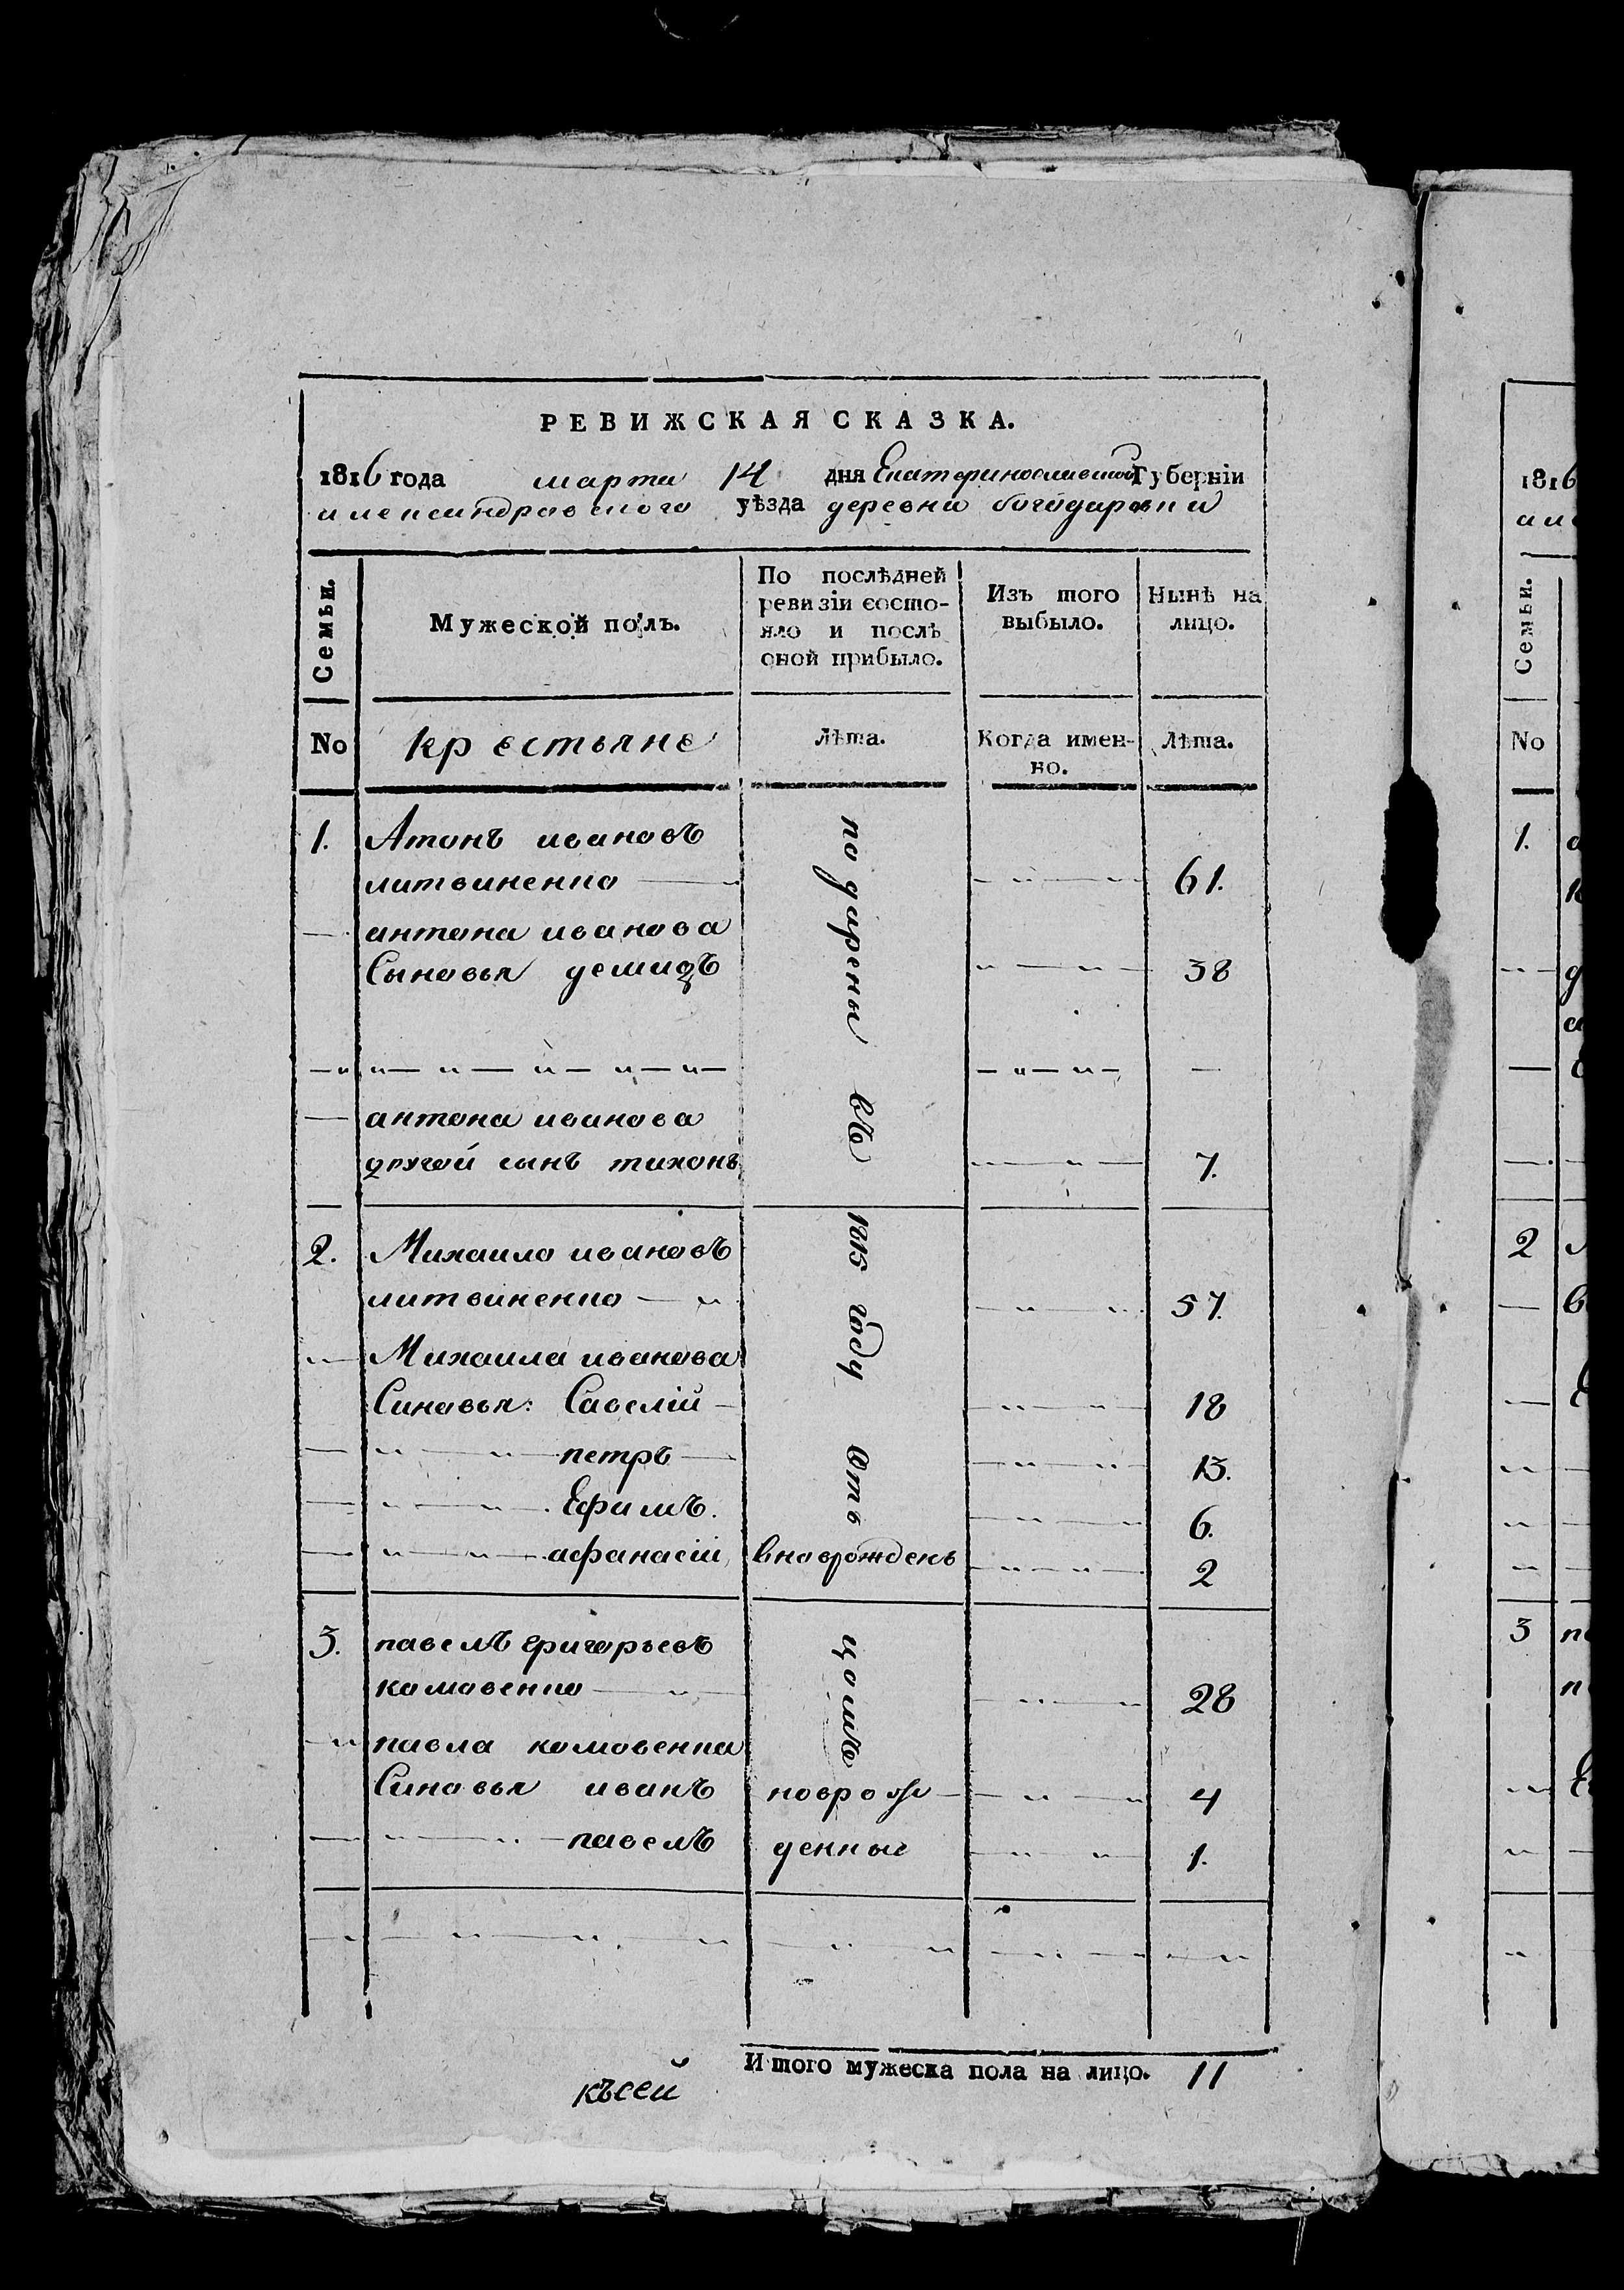 РЕВИЖСКАЯ СКАЗКА.
1816 года марта 14 дня Екатеринославской Губерніи
александровского уѣзда деревни богодаровки
Семьи.
Мужеской полъ.
По послѣдней ревизіи состо-
яло и послѣ
оной прибыло.
Изъ того
выбыло.
Нынѣ на
лицо.
No
крестьяне
Лѣта.
Когда имен-
но.
Лѣта.
1. Атонъ ивановъ
литвиненко 61.
антона иванова
Сыновья демидъ 38
антона иванова
другой сынъ тихонъ 7.
2. Михаило ивановъ
литвиненко 57.
Михаила иванова
Синовья: Савелій 18
петръ 13.
Ефимъ. 6.
афанасій вноврожденъ 2
3. павелъ григорьевъ
комовенко 28
павла комовенка
Синовья иванъ новрож 4
павелъ денные 1.
подарены въ 1815 году отъ
Итого мужеска пола на лицо. 11
късей
1816
Семьи.
No
1.
2
3